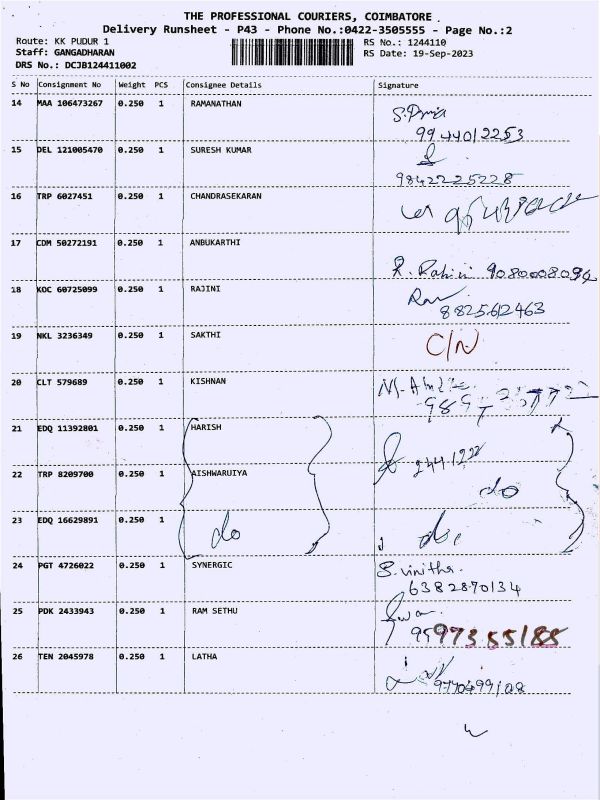 THE PROFESSIONAL COURIERS, COIMBATORE
Delivery Runsheet - P43 - Phone No.:0422-3505555 - Page No.:2
Route: KK PUDUR 1 RS No.: 1244110
Staff: GANGADHARAN RS Date: 19-Sep-2023
DRS No.: DCJB124411002
S No Consignment No Weight PCS Consignee Details Signature
14 MAA 106473267 0.250 1 RAMANATHAN
S. Priya
9944012253
15 DEL 121005470 0.250 1 SURESH KUMAR
9842225228
16 TRP 6027451 0.250 1 CHANDRASEKARAN
17 CDM 50272191 0.250 1 ANBUKARTHI
R. Rahini 9080008094
18 KOC 60725099 0.250 1 RAJINI
8825612463
19 NKL 3236349 0.250 1 SAKTHI
C/N
20 CLT 579689 0.250 1 KISHNAN
21 EDQ 11392801 0.250 1 HARISH
22 TRP 8209700 0.250 1 AISHWARUIYA
do
23 EDQ 16629891 0.250 1
do do
24 PGT 4726022 0.250 1 SYNERGIC
S. vinitha.
6382870134
25 PDK 2433943 0.250 1 RAM SETHU
9597355188
26 TEN 2045978 0.250 1 LATHA